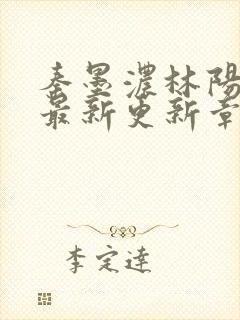 秦墨濃林陽
最新更新章
李定達